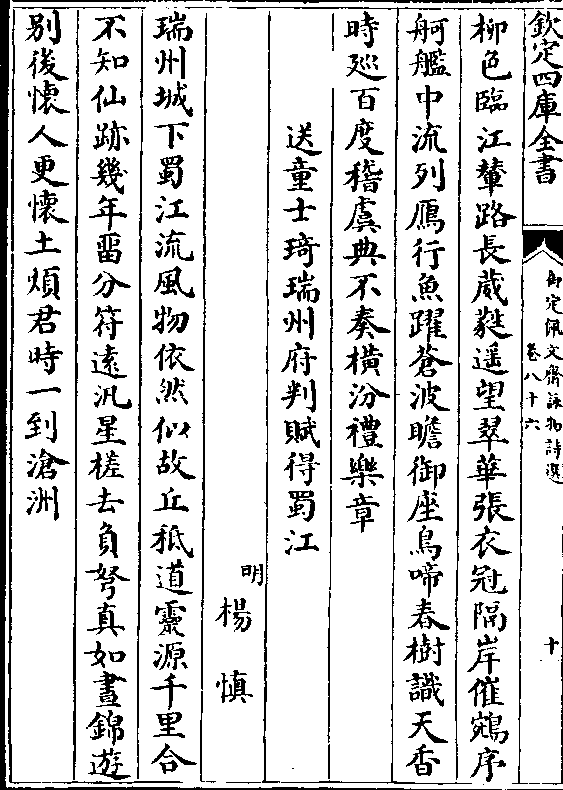 欽定四庫全書
御定佩文齋詠物詩選
卷八十六
十
柳色臨江輦路長葳蕤遥望翠華張衣冠隔岸催鵷序
舸艦中流列鴈行魚躍蒼波瞻御座鳥啼春樹識天香
時廵百度稽虞典不奏橫汾禮樂章
送童士琦瑞州府判賦得蜀江
明
楊慎
瑞州城下蜀江流風物依然似故丘秪道靈源千里合
不知仙跡幾年畱分符遠汎星槎去負弩真如晝錦遊
别後懷人更懷土煩君時一到滄洲